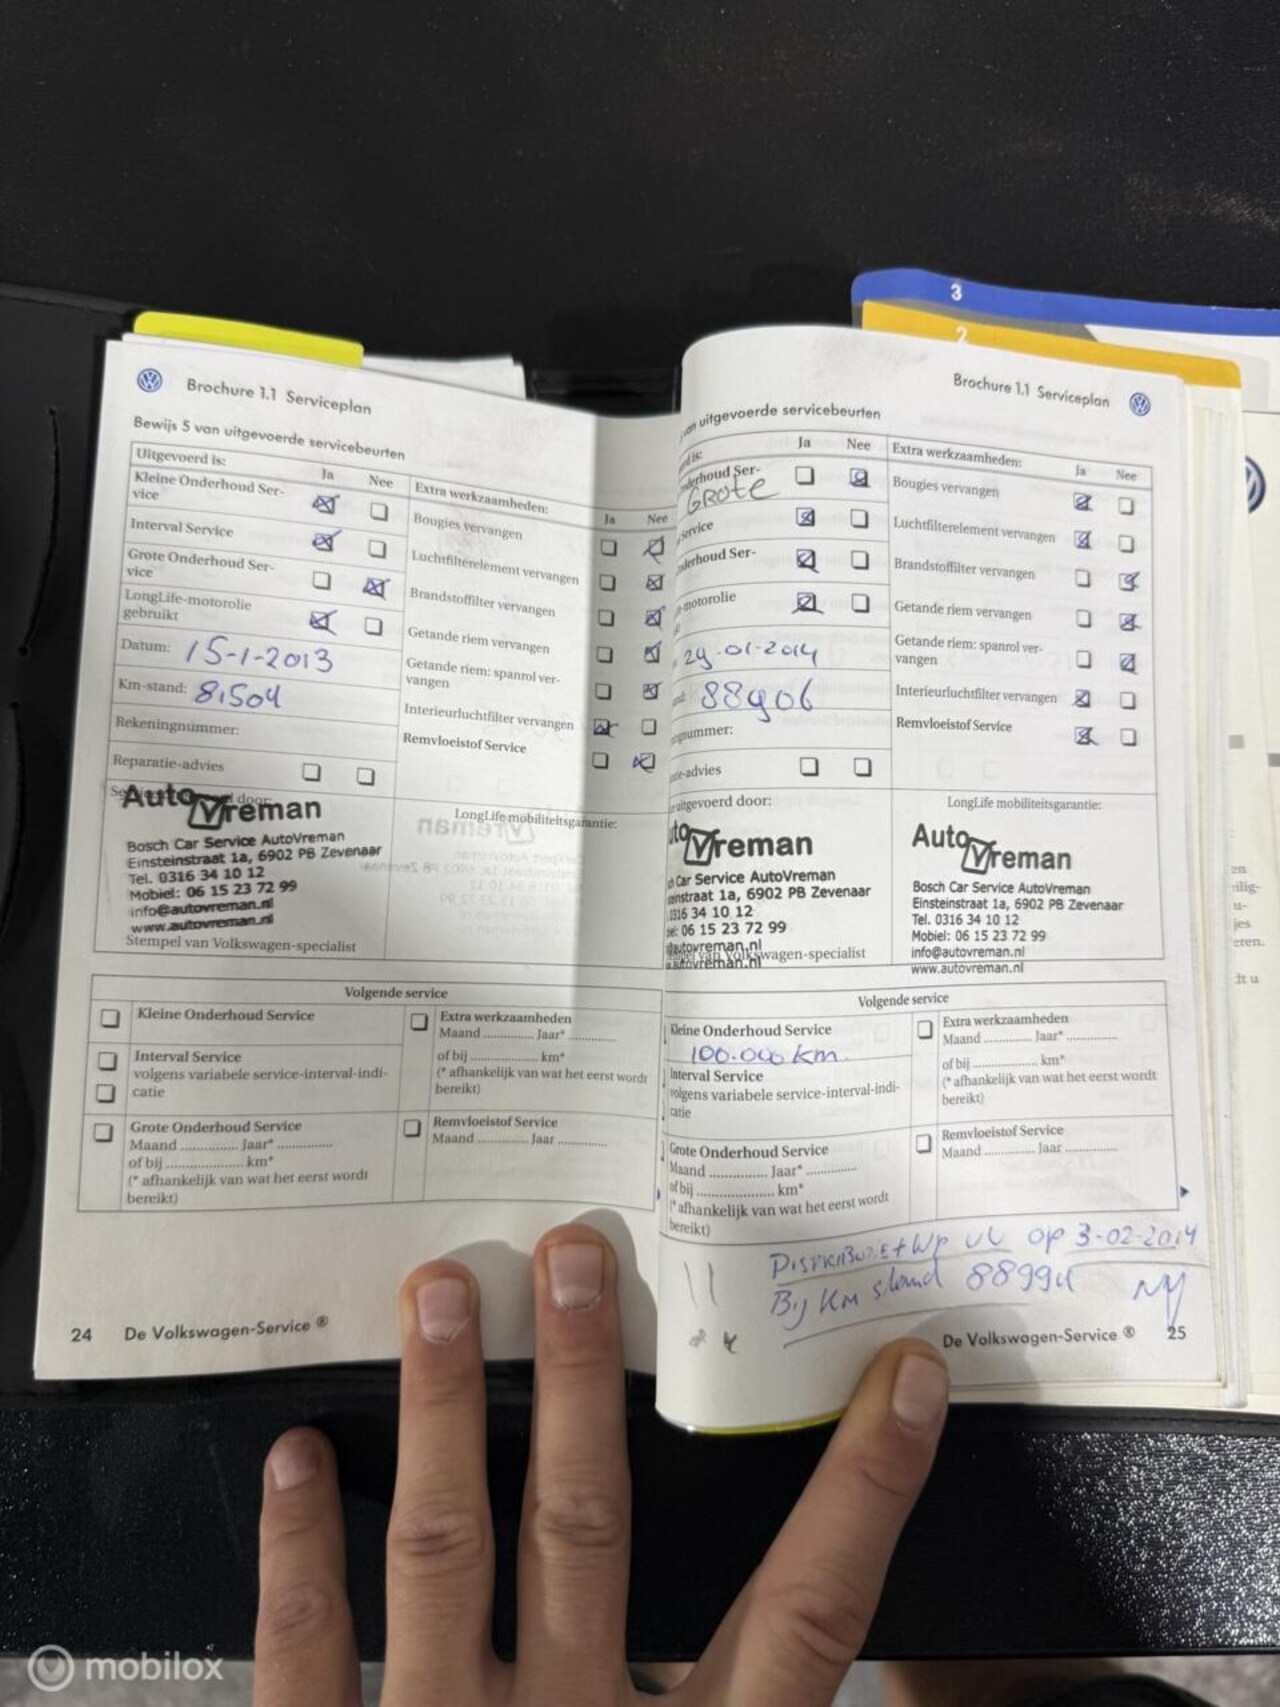 3
2
Brochure 1.1 Serviceplan
Bewijs 5 van uitgevoerde servicebeurten
Uitgevoerd is:
Ja Nee
Kleine Onderhoud Ser-
vice
Interval Service
Grote Onderhoud Ser-
vice
LongLife-motorolie
gebruikt
Datum: 15-1-2013
Km-stand: 81504
Rekeningnummer:
Reparatie-advies
Extra werkzaamheden:
Ja Nee
Bougies vervangen
Luchtfilterelement vervangen
Brandstoffilter vervangen
Getande riem vervangen
Getande riem: spanrol ver-
vangen
Interieurluchtfilter vervangen
Remvloeistof Service
Auto Vreman
Bosch Car Service AutoVreman
Einsteinstraat 1a, 6902 PB Zevenaar
Tel. 0316 34 10 12
Mobiel: 06 15 23 72 99
info@autovreman.nl
www.autovreman.nl
Stempel van Volkswagen-specialist
LongLife mobiliteitsgarantie:
Volgende service
Kleine Onderhoud Service
Interval Service
volgens variabele service-interval-indi-
catie
Grote Onderhoud Service
Maand .............. Jaar* ..............
of bij .................... km*
(* afhankelijk van wat het eerst wordt
bereikt)
Extra werkzaamheden
Maand ............ Jaar* ............
of bij .................... km*
(* afhankelijk van wat het eerst wordt
bereikt)
Remvloeistof Service
Maand ............ Jaar ............
24 De Volkswagen-Service ®
Brochure 1.1 Serviceplan
van uitgevoerde servicebeurten
Ja Nee
nderhoud Ser-
GROTE
Service
nderhoud Ser-
-motorolie
29-01-2014
88906
nummer:
tie-advies
Extra werkzaamheden:
Ja Nee
Bougies vervangen
Luchtfilterelement vervangen
Brandstoffilter vervangen
Getande riem vervangen
Getande riem: spanrol ver-
vangen
Interieurluchtfilter vervangen
Remvloeistof Service
uitgevoerd door:
uto Vreman
h Car Service AutoVreman
insteinstraat 1a, 6902 PB Zevenaar
0316 34 10 12
el: 06 15 23 72 99
autovreman.nl
van Volkswagen-specialist
autovreman.nl
LongLife mobiliteitsgarantie:
Auto Vreman
Bosch Car Service AutoVreman
Einsteinstraat 1a, 6902 PB Zevenaar
Tel. 0316 34 10 12
Mobiel: 06 15 23 72 99
info@autovreman.nl
www.autovreman.nl
Volgende service
Kleine Onderhoud Service
100.000 km.
Interval Service
volgens variabele service-interval-indi-
catie
Grote Onderhoud Service
Maand .............. Jaar* ............
of bij .................... km*
(* afhankelijk van wat het eerst wordt
bereikt)
Extra werkzaamheden
Maand ............ Jaar* ............
of bij .................... km*
(* afhankelijk van wat het eerst wordt
bereikt)
Remvloeistof Service
Maand ............ Jaar ............
op 3-02-2014
Bij Km stand
De Volkswagen-Service ® 25
mobilox